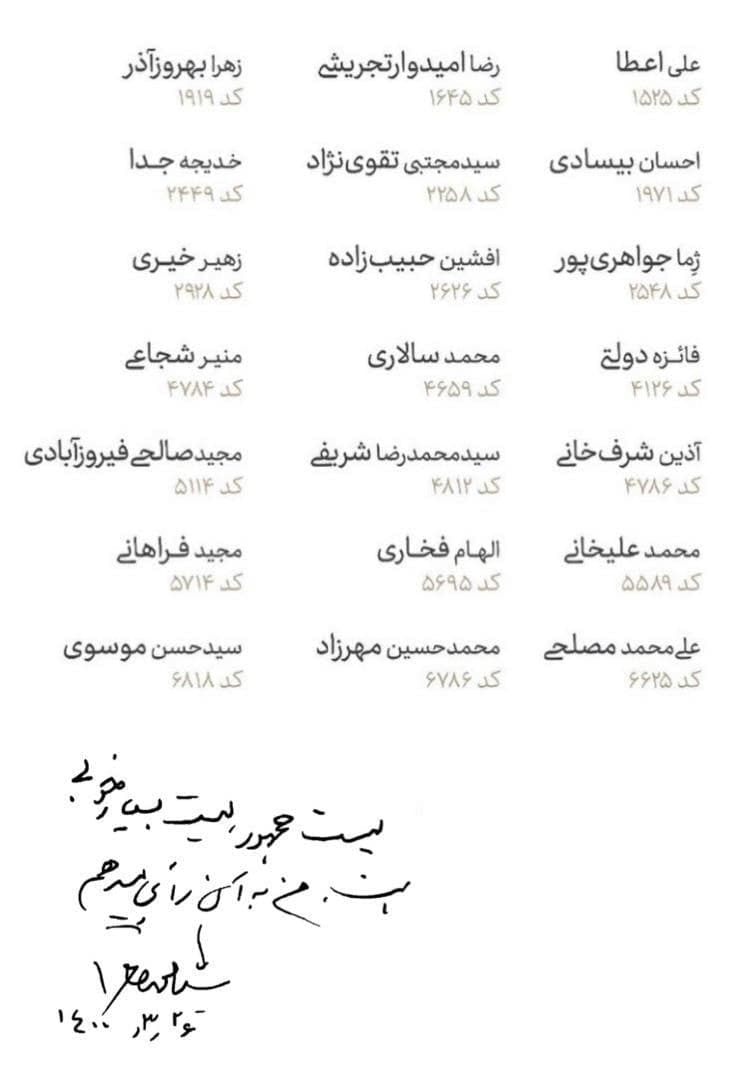 علی اعطا
کد ۱۵۲۵
رضا امیدوار تجریشی
کد ۱۶۴۵
زهرا بهروزآذر
کد ۱۹۱۹
احسان بیسادی
کد ۱۹۷۱
سیدمجتبی تقوی‌نژاد
کد ۲۲۵۸
خدیجه جدا
کد ۲۴۴۹
ژما جواهری‌پور
کد ۲۵۴۸
افشین حبیب‌زاده
کد ۲۶۲۶
زهیر خیری
کد ۲۹۲۸
فائزه دولتی
کد ۴۱۲۶
محمد سالاری
کد ۴۶۵۹
منیر شجاعی
کد ۴۷۸۴
آذین شرف‌خانی
کد ۴۷۸۶
سیدمحمدرضا شریفی
کد ۴۸۱۲
مجید صالحی فیروزآبادی
کد ۵۱۱۴
محمد علیخانی
کد ۵۵۸۹
الهام فخاری
کد ۵۶۹۵
مجید فراهانی
کد ۵۷۱۴
علی‌محمد مصلحی
کد ۶۶۲۵
محمدحسین مهرزاد
کد ۶۷۸۶
سیدحسن موسوی
کد ۶۸۱۸
لیست جمهور لیست بسیار خوبی
است. من به آن رأی میدهم
۱۴۰۰ ر۳ر ۲۶